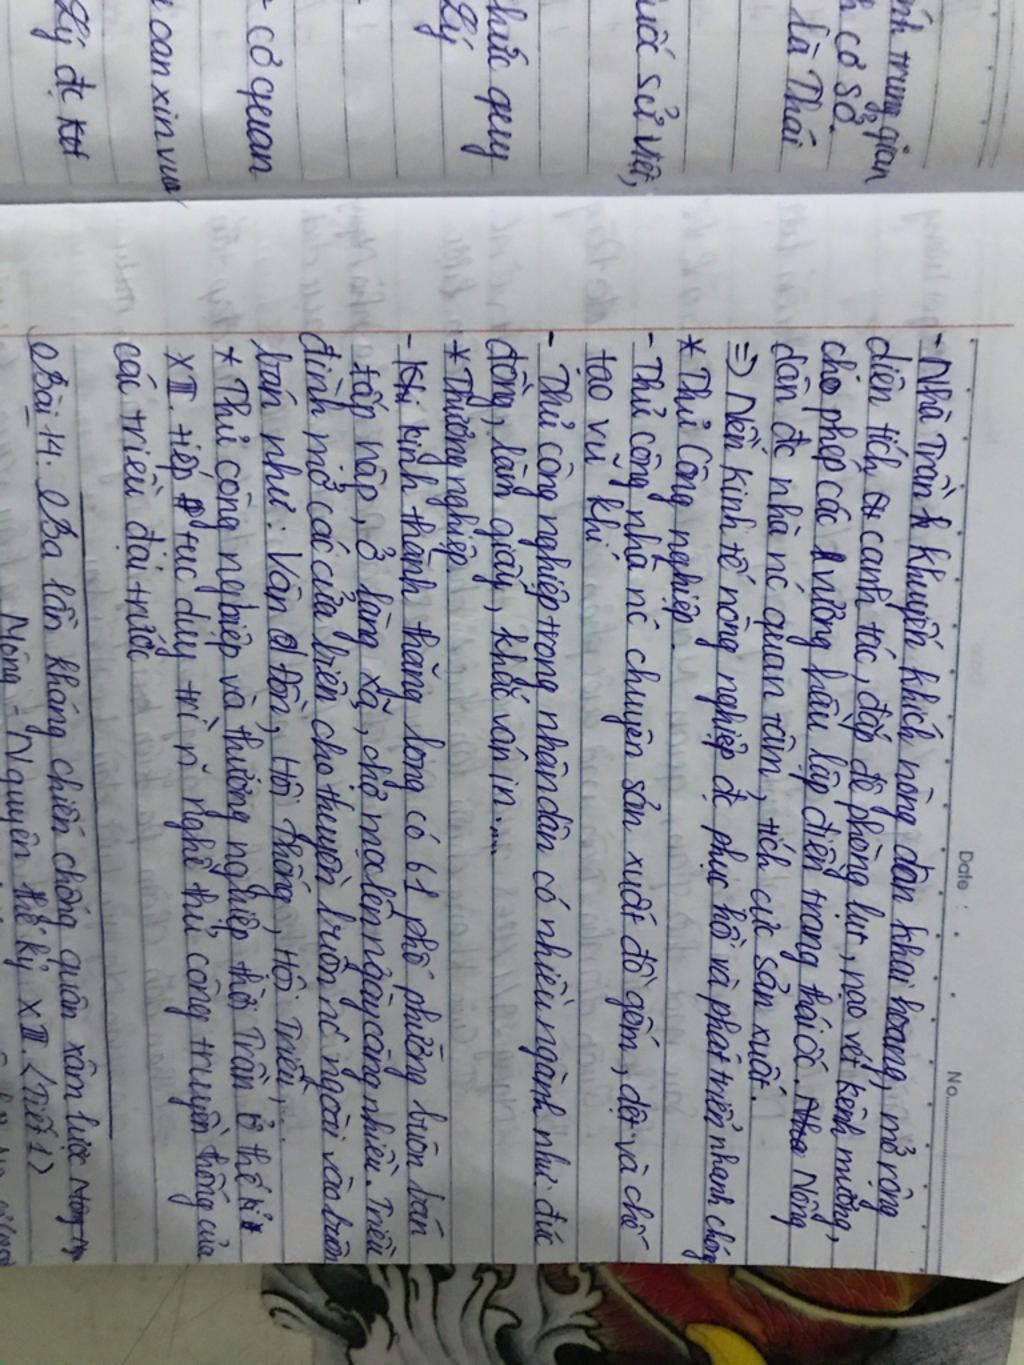 ính trung gian
h cơ sở.
là Thái
uốc sử Việt,
hức quy
Lý
cơ quan
can xin vua
Lý đc
Date :
No.
- Nhà Trần khuyến khích nông dân khai hoang, mở rộng
diện tích canh tác, đắp đê phòng lụt, nạo vét kênh mương,
cho phép các vương hầu lập điền trang thái ốc. Nông
dân đc nhà nc quan tâm, tích cực sản xuất.
=> Nền kinh tế nông nghiệp đc phục hồi và phát triển nhanh chóng
* Thủ công nghiệp.
- Thủ công nhà nc chuyên sản xuất đồ gốm, dệt và chế
tạo vũ khí
- Thủ công nghiệp trong nhân dân có nhiều ngành như: đúc
đồng, làm giấy, khắc ván in....
* Thương nghiệp
- kinh thành thăng long có 61 phố phường buôn bán
tấp nập, ở làng xã, chợ mọc lên ngày càng nhiều. Triều
đình mở các cửa biển cho thuyền buôn nc ngoài vào buôn
bán như: Vân đồn, Hội thống, Hội Triều,..
* Thủ công nghiệp và thương nghiệp thời Trần ở thế kỉ
XIII. tiếp tục duy trì n~ nghề thủ công truyền thống của
các triều đại trước
Bài 14. Ba lần kháng chiến chống quân xâm lược
Mông - Nguyên thế kỷ XIII. <Tiết 1>